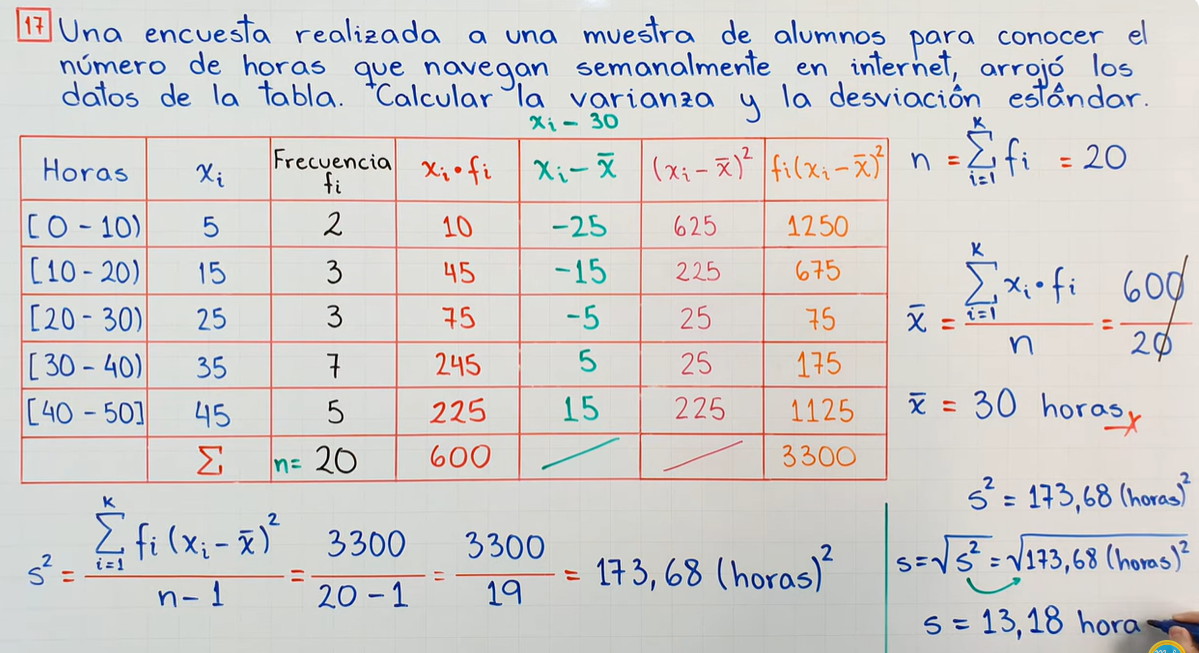 17 Una encuesta realizada a una muestra de alumnos para conocer el
número de horas que navegan semanalmente en internet, arrojó los
datos de la tabla. Calcular la varianza y la desviación estándar.
xᵢ - 30
Horas xᵢ Frecuencia fᵢ xᵢ•fᵢ xᵢ-x̄ (xᵢ-x̄)² fᵢ(xᵢ-x̄)²
[0-10) 5 2 10 -25 625 1250
[10-20) 15 3 45 -15 225 675
[20-30) 25 3 75 -5 25 75
[30-40) 35 7 245 5 25 175
[40-50] 45 5 225 15 225 1125
Σ n= 20 600 3300
n = Σᵢ₌₁ᴷ fᵢ = 20
x̄ = Σᵢ₌₁ᴷ xᵢ•fᵢ / n = 600 / 20
x̄ = 30 horas
s² = Σᵢ₌₁ᴷ fᵢ(xᵢ-x̄)² / n-1 = 3300 / 20-1 = 3300 / 19 = 173,68 (horas)²
s² = 173,68 (horas)²
s = √s² = √173,68 (horas)²
s = 13,18 hora